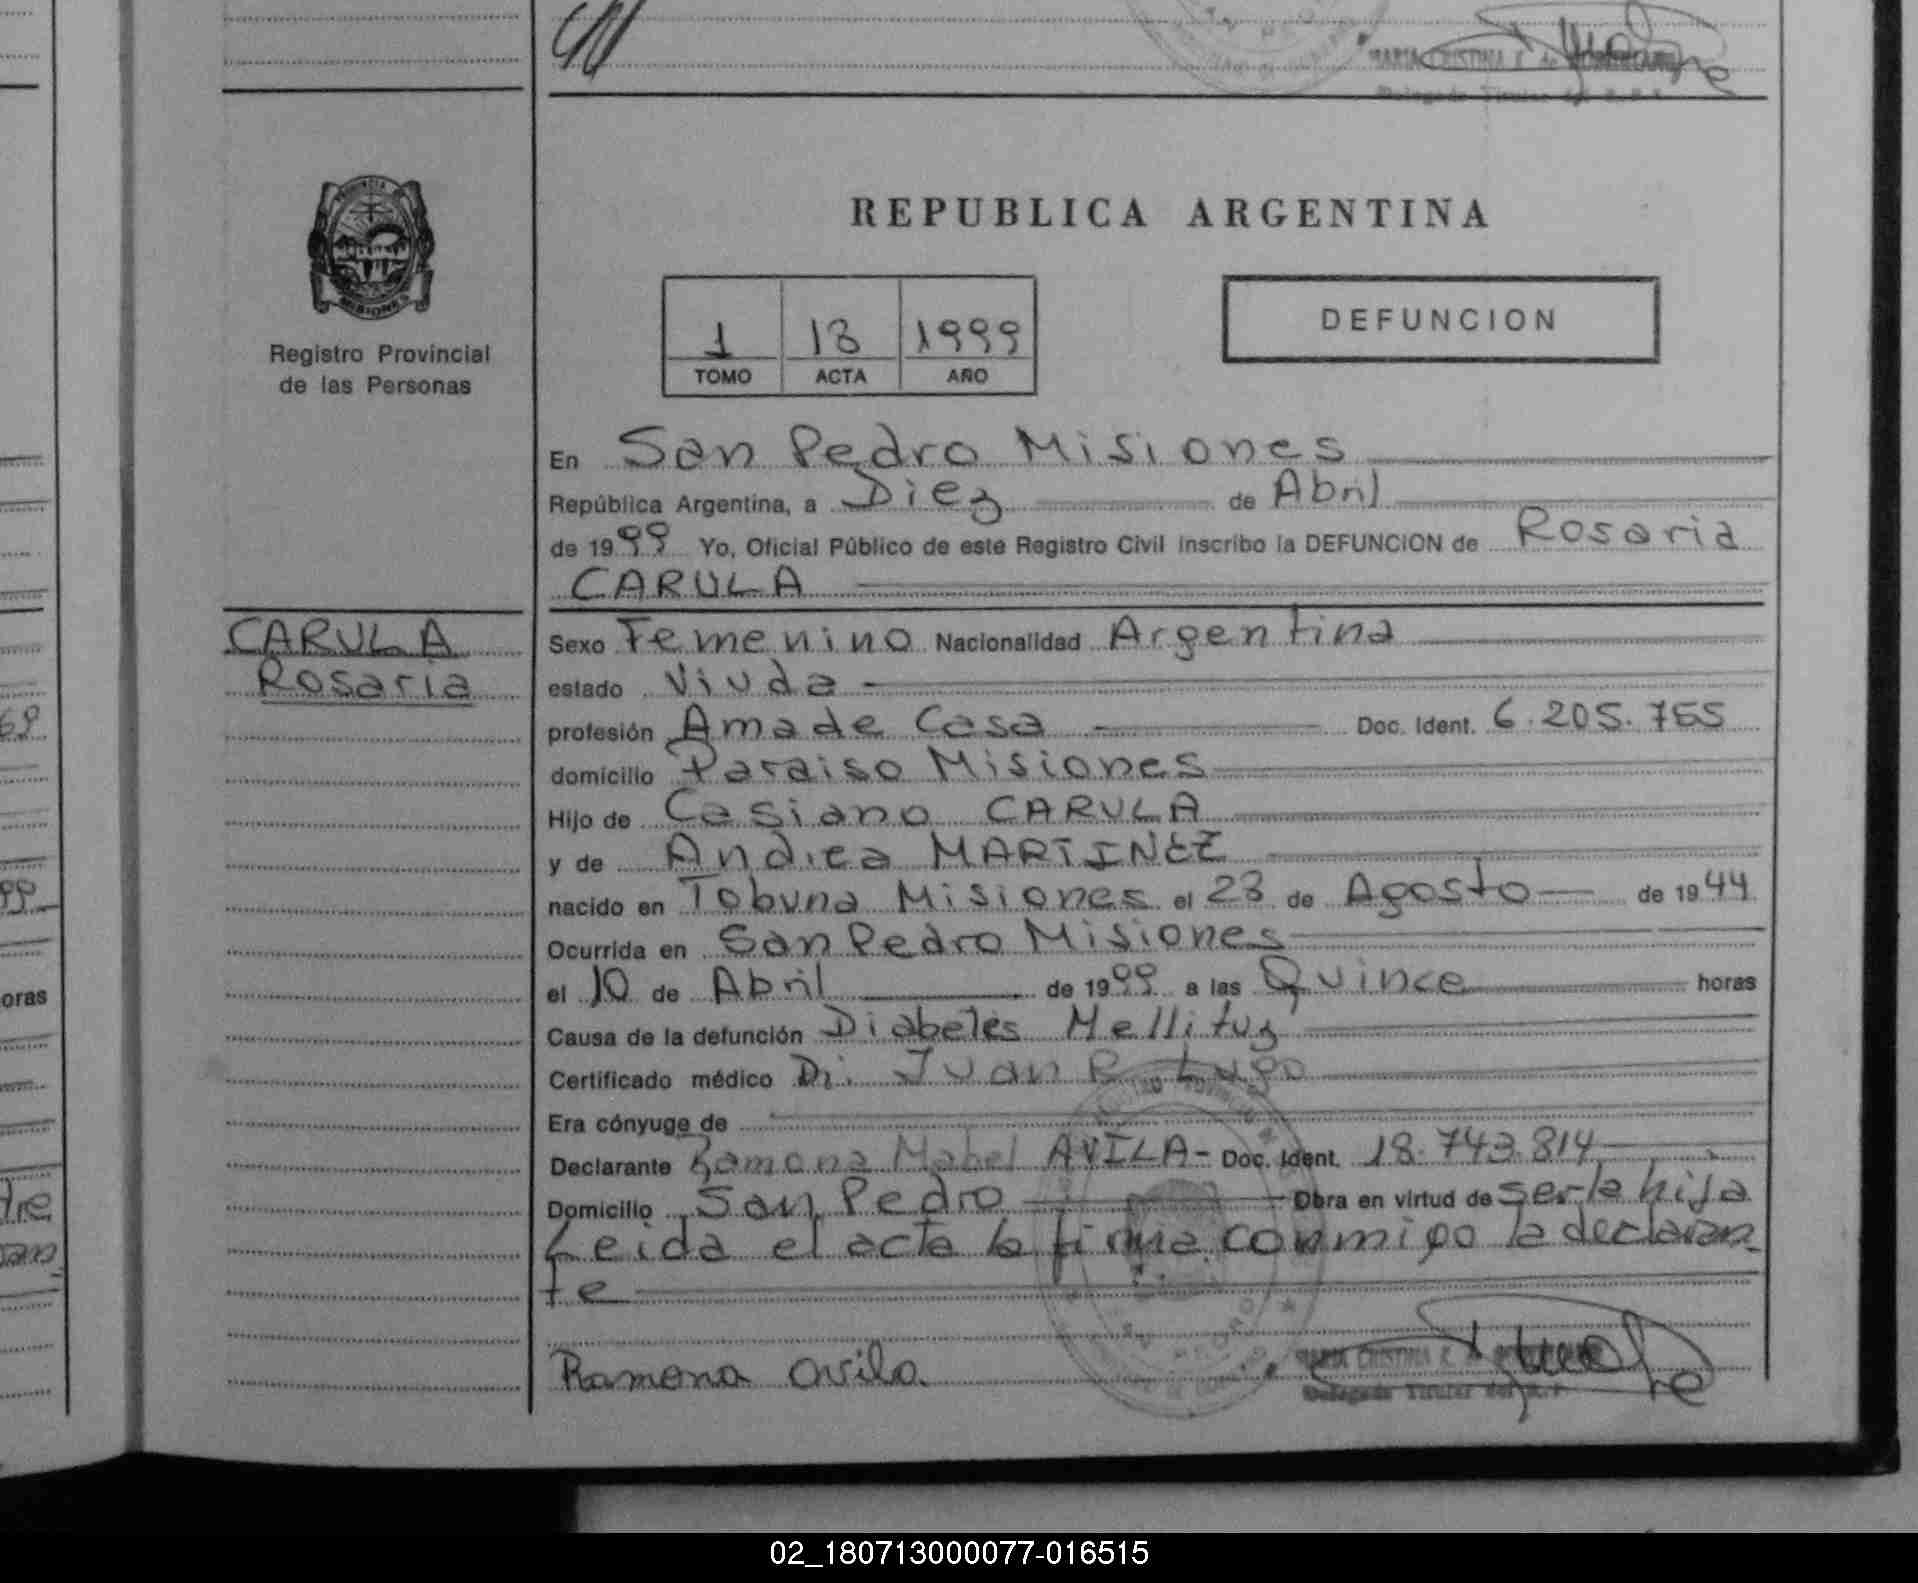 REPUBLICA ARGENTINA
PROVINCIA DE
MISIONES
Registro Provincial
de las Personas
1 13 1999
TOMO ACTA AÑO
DEFUNCION
En San Pedro Misiones
República Argentina, a Diez de Abril
de 1999 Yo, Oficial Público de este Registro Civil inscribo la DEFUNCION de Rosaria
CARULA
CARULA
Rosaria
Sexo Femenino Nacionalidad Argentina
estado Viuda
profesión Amade Casa Doc. Ident. 6.205.755
domicilio Paraiso Misiones
Hijo de Casiano CARULA
y de Andrea MARTINEZ
nacido en Tobuna Misiones el 23 de Agosto de 1944
Ocurrida en San Pedro Misiones
el 10 de Abril de 1999 a las Quince horas
Causa de la defunción Diabetes Mellitus
Certificado médico Dr. Juan R Lugo
Era cónyuge de
Declarante Ramona Mabel AVILA- Doc. Ident. 18.743.814
Domicilio San Pedro Obra en virtud de ser la hija
Leida el acta la firma conmigo la declaran-
te
Ramona Avila
MARIA CRISTINA R. de
Delegada Titular del R.P
02_180713000077-016515